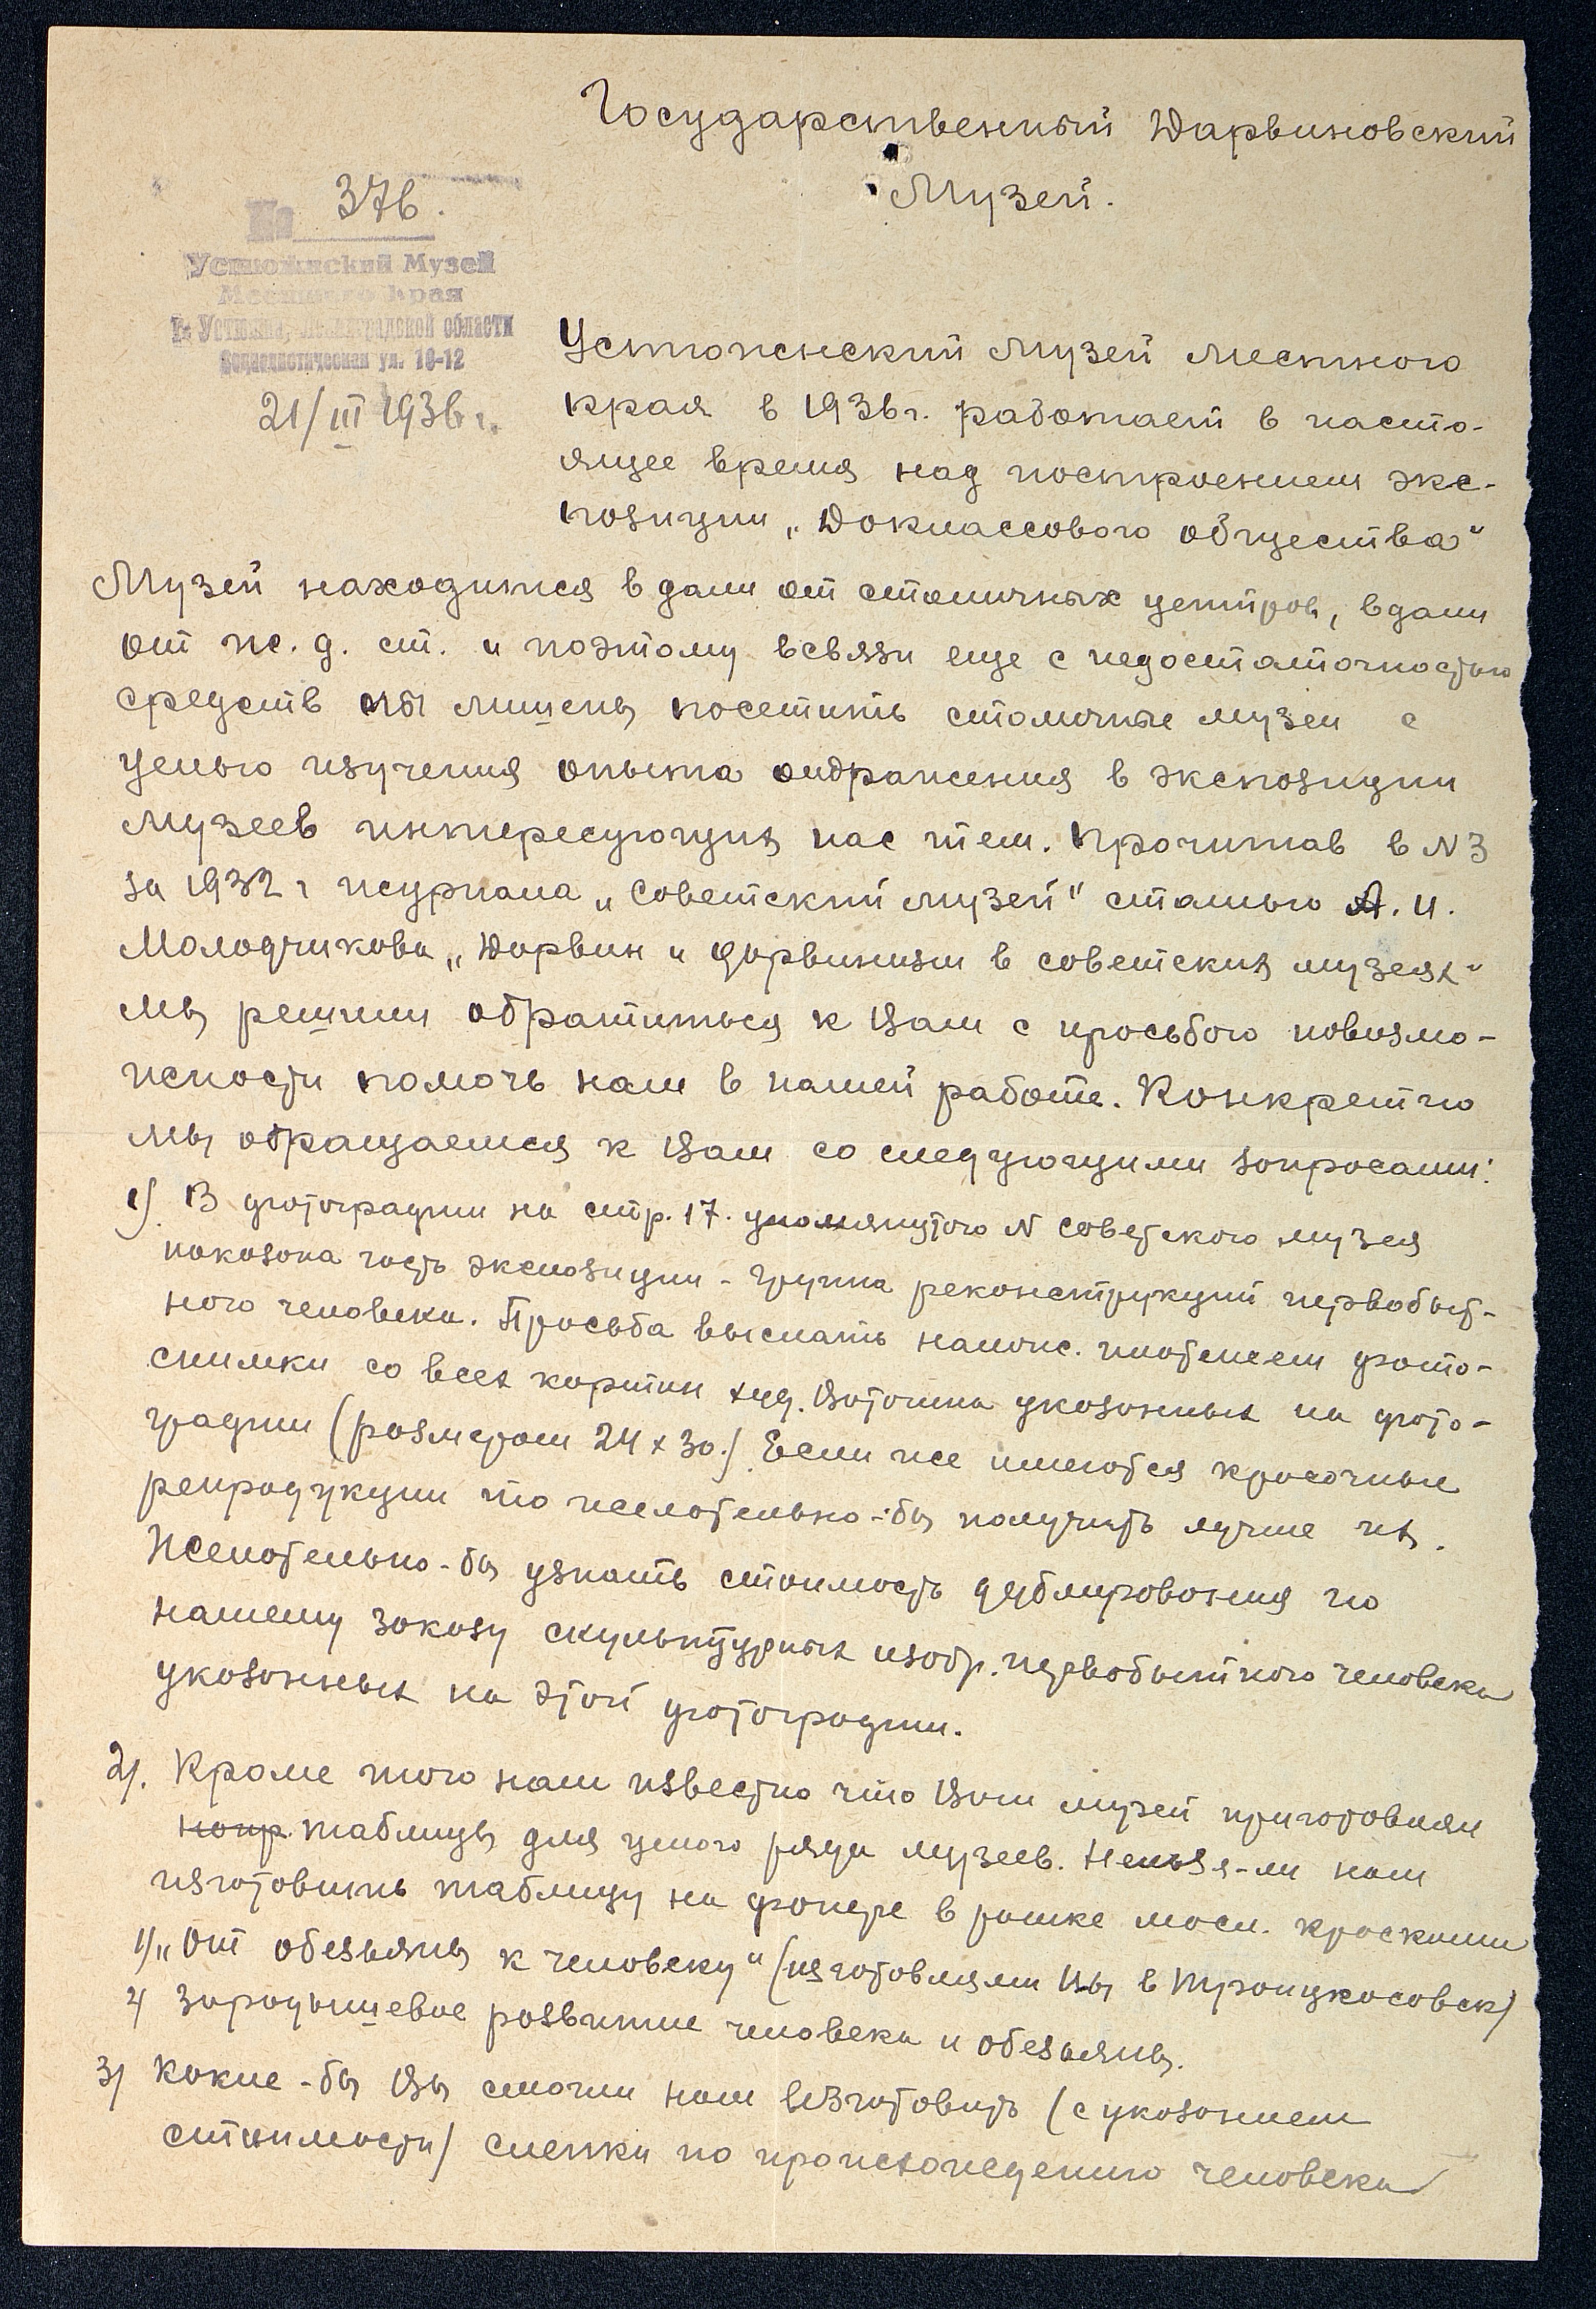 Государственный Дарвиновский
Музей.
№ 376.
Устюженский Музей
Местного Края
г. Устюжна, Ленинградской области
Социалистическая ул. 10-12
21/III 1936 г.
Устюженский музей местного
края в 1936 г. работает в насто-
ящее время над построением экс-
позиции „Доклассового общества"
Музей находится в дали от столичных центров, вдали
от ж. д. ст. и поэтому всвязи еще с недостаточностью
средств мы лишены посетить столичные музеи с
целью изучения опыта отображения в экспозиции
музеев интересующих нас тем. Прочитав в N 3
за 1932 г журнала „Советский музей" статью А. И.
Молодчикова „Дарвин и дарвинизм в советских музеях"
мы решили обратиться к Вам с просьбою повозмо-
жности помочь нам в нашей работе. Конкретно
мы обращаемся к Вам со следующими вопросами:
1). В фотографии на стр. 17. упомянутого N советского музея
показана часть экспозиции - группа реконструкций первобыт-
ного человека. Просьба выслать налож. платежем фото-
снимки со всех картин худ. Ватагина указанных на фото-
графии (размером 24 х 30.). Если же имеются красочные
репродукции то желательно-бы получить лучше их.
Желательно-бы узнать стоимость дублирования по
нашему заказу скульптурных изобр. первобытного человека
указанных на этой фотографии.
2). Кроме того нам известно что Ваш музей приготовлял
таблицы для целого ряда музеев. Нельзя-ли нам
изготовить таблицу на фанере в рамке масл. красками
1) „От обезьяны к человеку" (изготовляли Вы в Троицкосовск)
2) Зародышевое развитие человека и обезьяны.
3) Какие-бы Вы смогли нам изготовить (с указанием
стоимости) слепки по происхождению человека